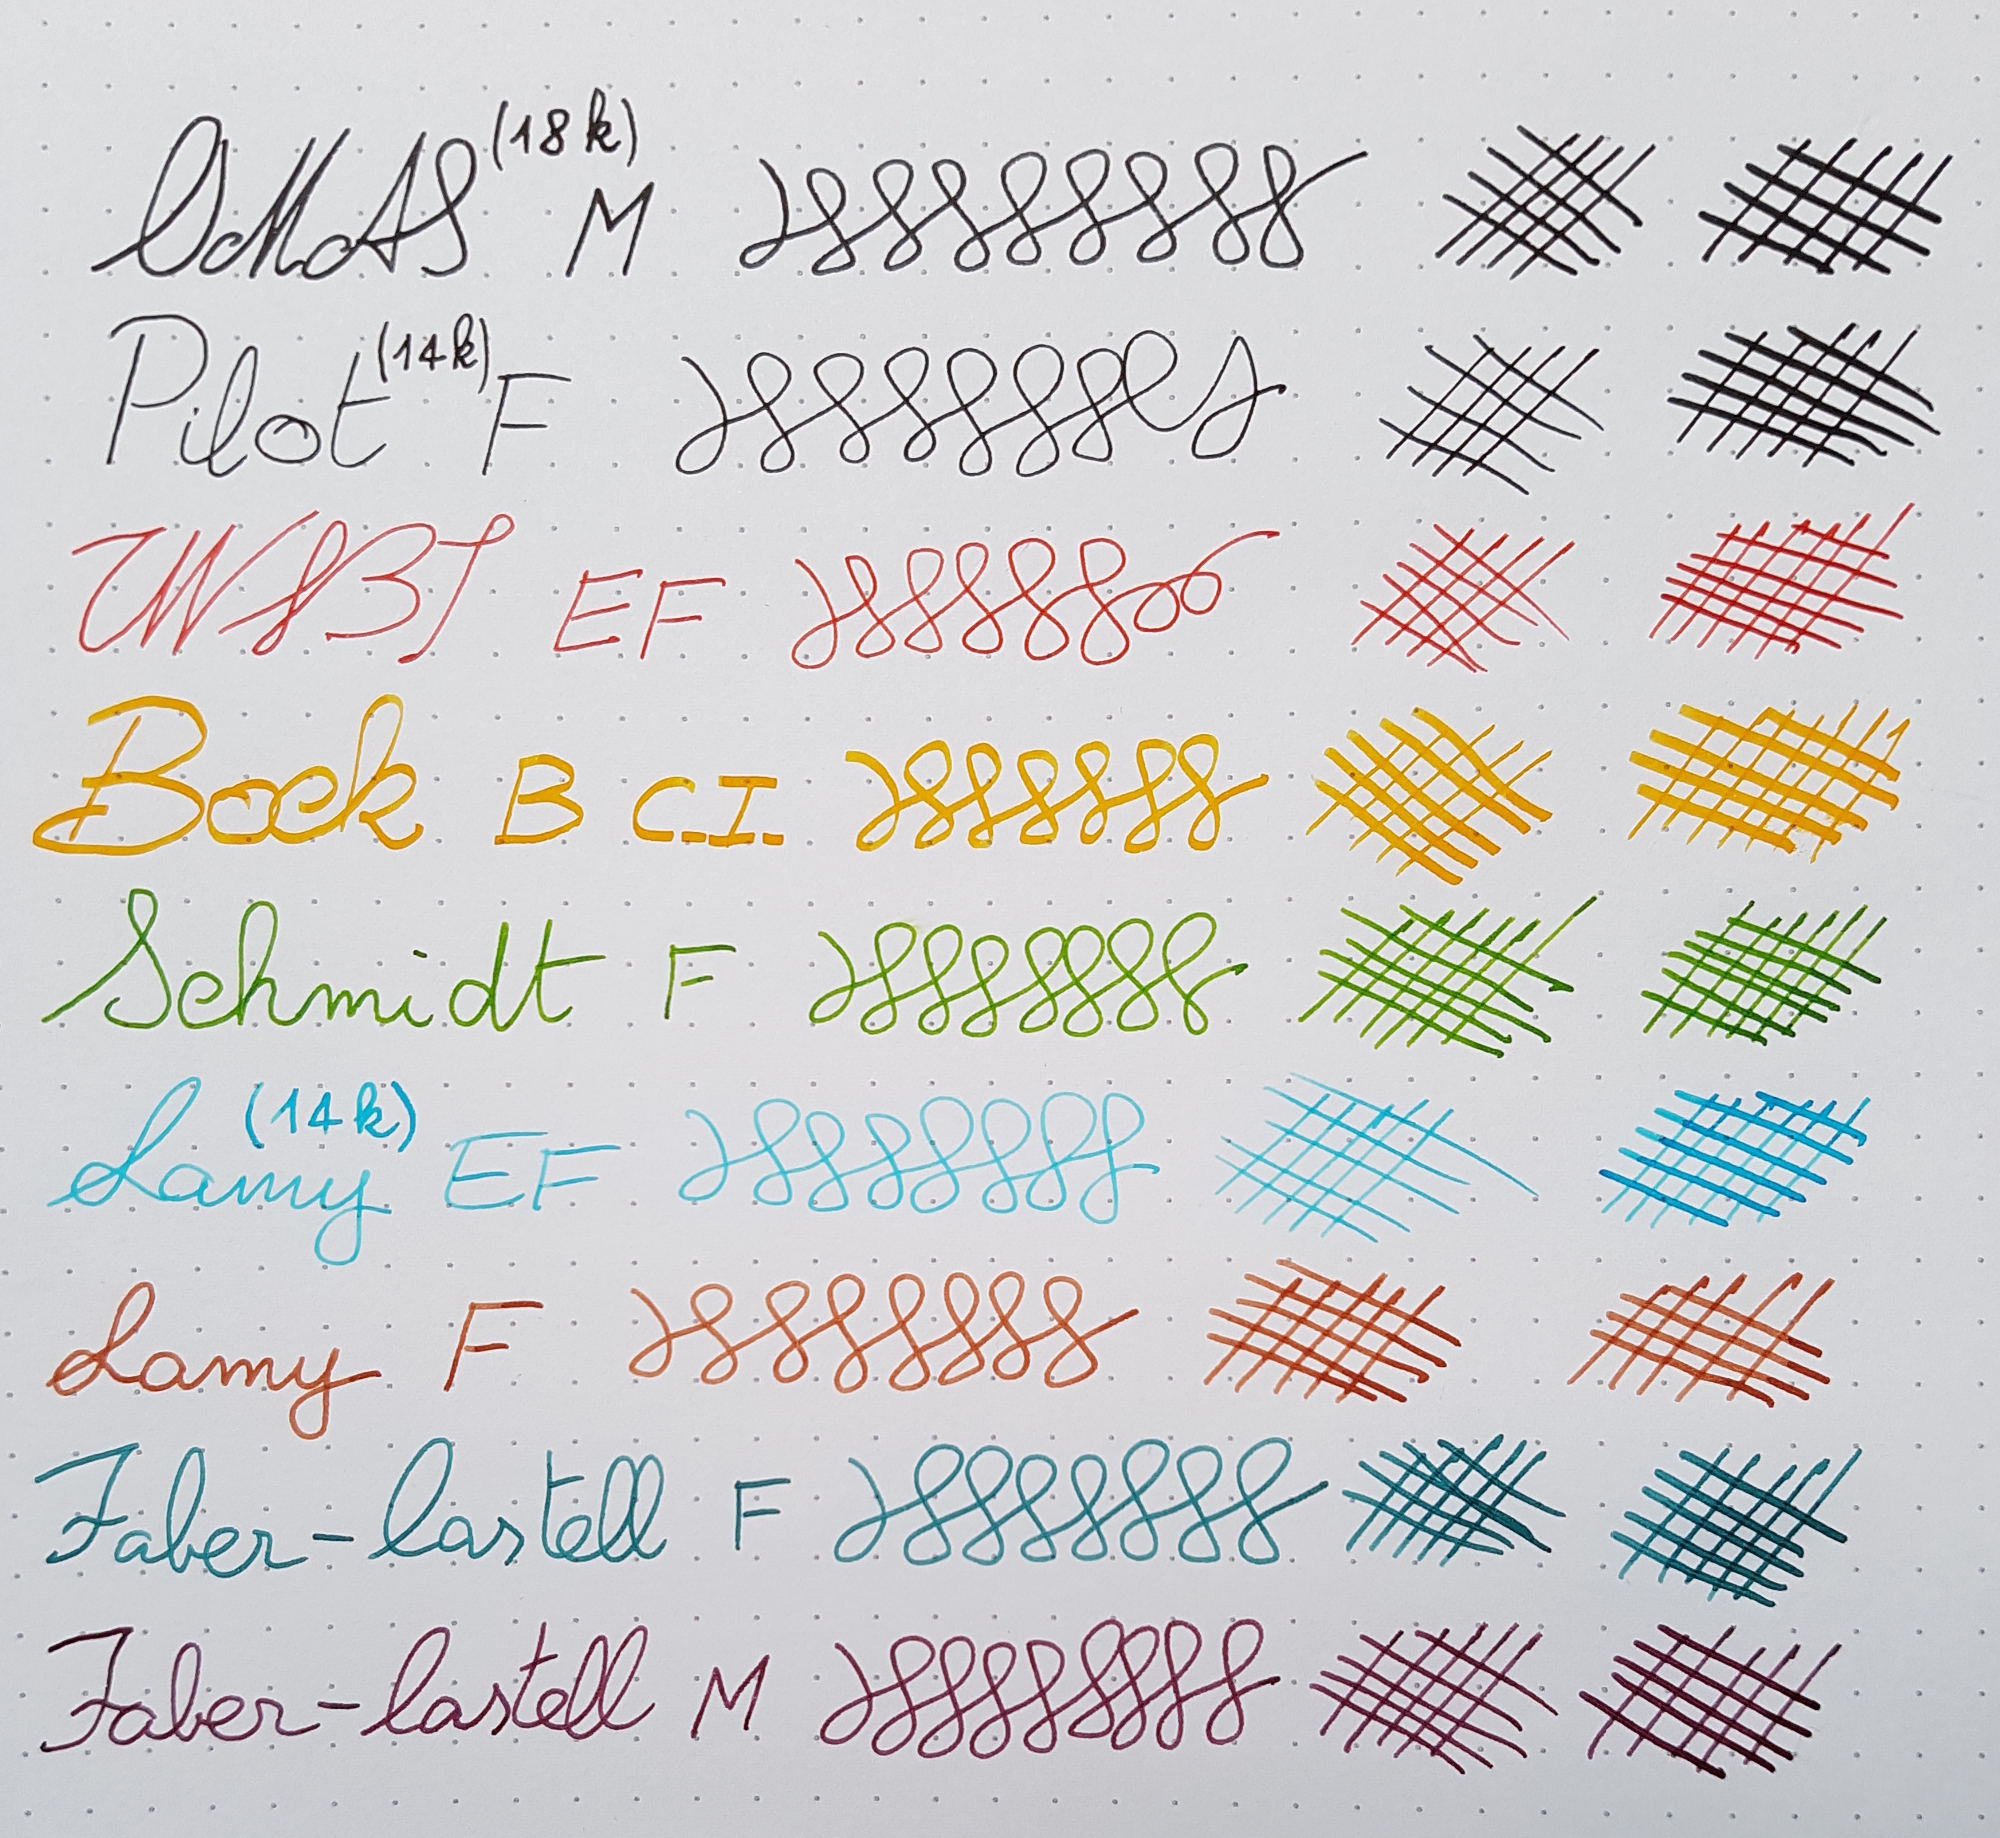 OMAS (18k) M
Pilot (14k) F
TWSBI EF
Bock B C.I.
Schmidt F
Lamy (14k) EF
Lamy F
Faber-Castell F
Faber-Castell M